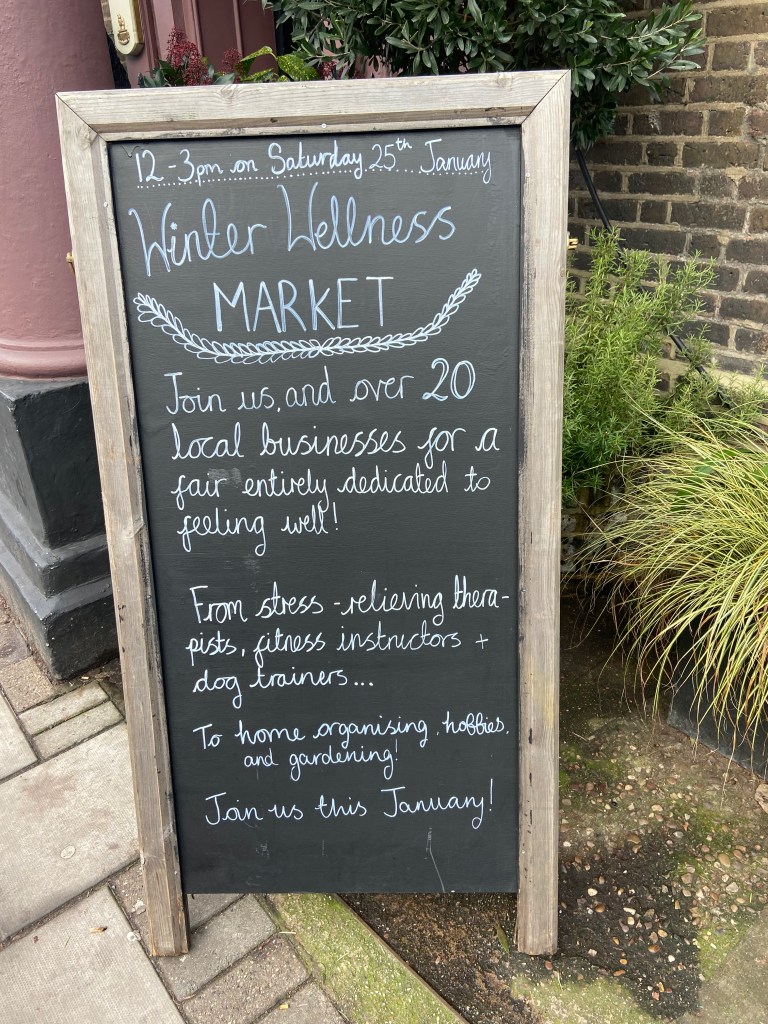 12-3pm on Saturday 25th January
Winter Wellness
MARKET
Join us, and over 20
local businesses for a
fair entirely dedicated to
feeling well!
From stress-relieving thera-
pists, fitness instructors +
dog trainers...
To home organising, hobbies,
and gardening!
Join us this January!